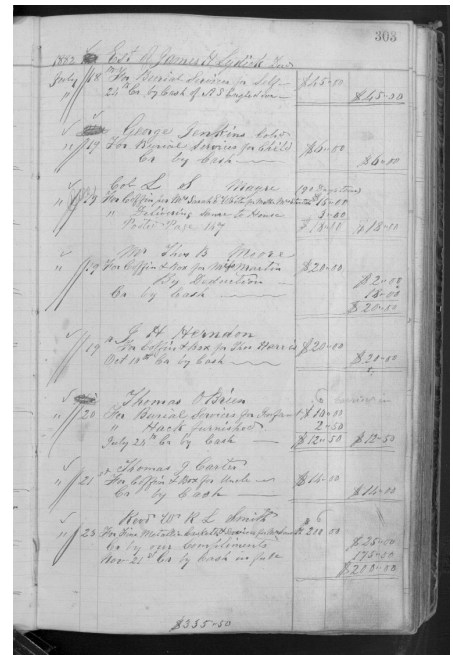 303
1882 Est of James H Lydick
July 18 To For Burial Services for Self $45-00
" 24th Cr. by Cash of A S $45-00
George Jenkins Col'd
" 19 For Burial Services for Child $6-00
Cr by Cash $6-00
Col. L S Magre
" 19 For Coffin for Mrs $15-00
" Delivering Same to House 3-00
Posted Page 167 $18-00 $18-00
Mr Thos B Moore
" 19 For Coffin & Box for Martin $20-00
By Deduction $2-00
Cr by Cash 18-00
$20-00
J H Herndon
" 19 For Coffin & Box for Harris $20-00
Oct 10th Cr by Cash $20-00
Thomas O'Brien
" 20 For Burial Services for Infant $10-00
" Hack furnished 2-50
July 24th Cr by Cash $12-50 $12-50
Thomas J Carter
" 21 For Coffin & Box for Uncle $14-00
Cr by Cash $14-00
Revd W R L Smith
" 23 For Fine Metallic Casket & Services for 200-00
Cr by our Compliments $25-00
Nov 21st Cr by Cash in full 175-00
$200-00
$335-50